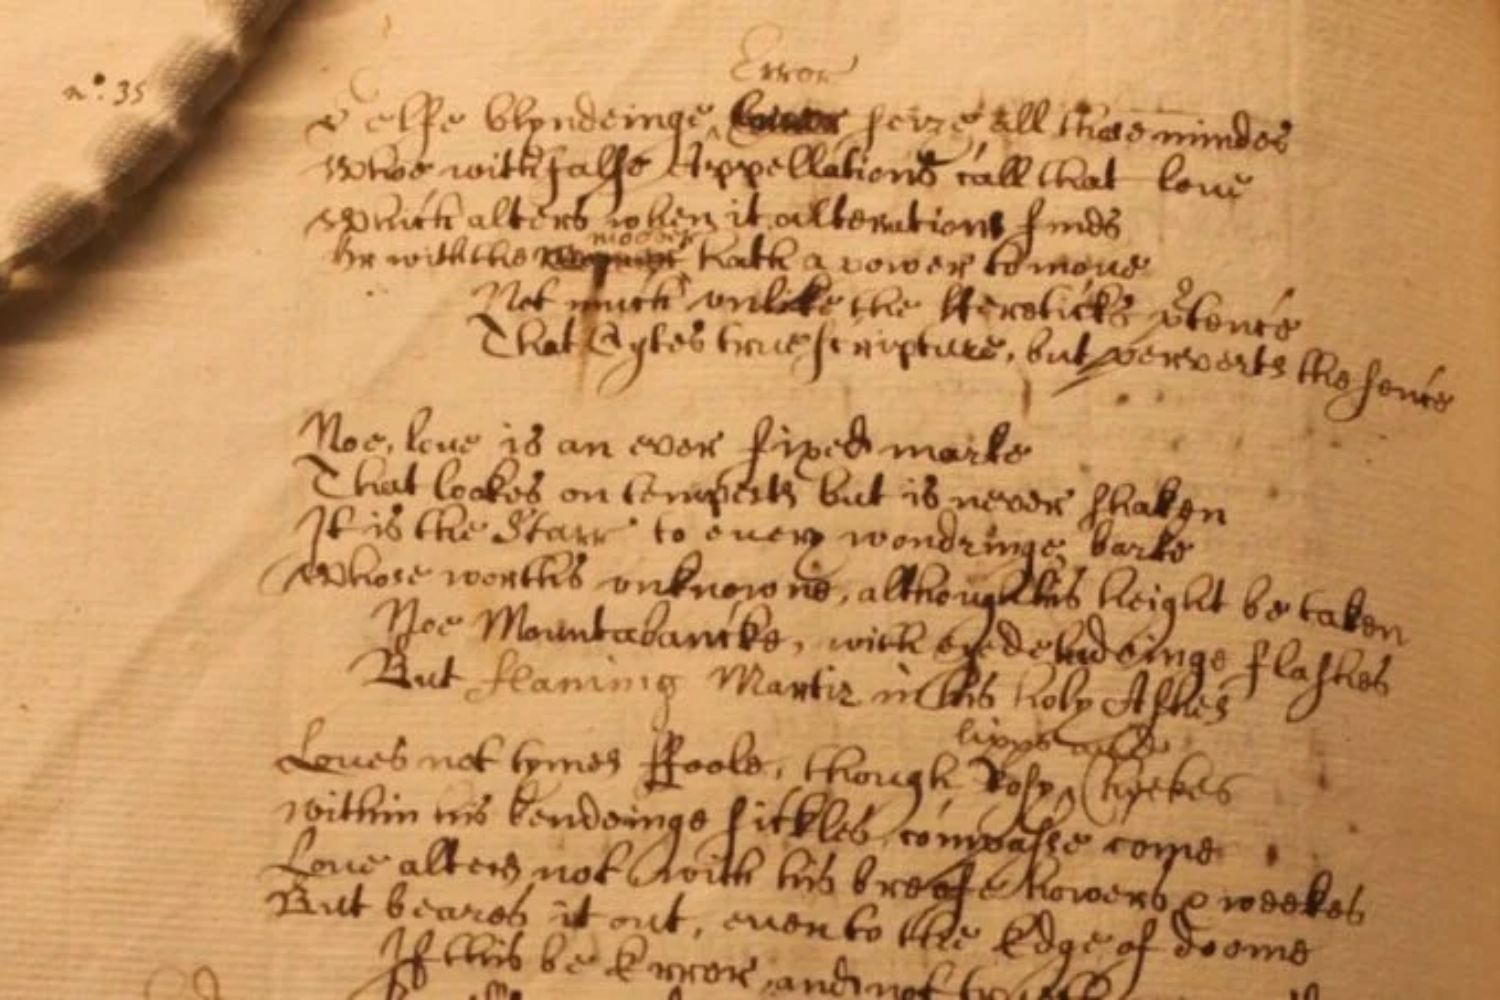 nº. 35
Error
selfe blyndeinge seize all those mindes
Whoe with false Appellations call that loue
Which alters when it alterations finds
mover
Or with the hath a power to moue
Not much unlike the Hereticks ptence
That Cytes true scripture, but perverts the sence
Noe, loue is an ever fixed marke
That lookes on tempests but is never shaken
It is the Starr to euery wondringe barke
Whose worths unknowne, although his height be taken
Noe Mountabancke, with eyedeludeinge flashes
But flaming Martir in his holy Ashes
lipps and
Loues not tymes ffoole, though Rosy Cheekes
within his bendeinge sickles compasse come
Loue alters not with his breife howers & weekes
But beares it out, euen to the Edge of doome
If this be Error, and not